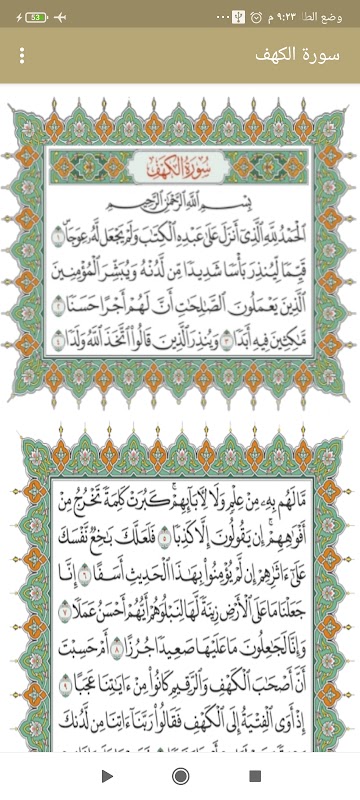 53
وضع الطا ٩:٢٣ م
سورة الكهف
سُورَةُ الكَهْفِ
بِسْمِ ٱللَّهِ ٱلرَّحْمَٰنِ ٱلرَّحِيمِ
ٱلْحَمْدُ لِلَّهِ ٱلَّذِىٓ أَنزَلَ عَلَىٰ عَبْدِهِ ٱلْكِتَٰبَ وَلَمْ يَجْعَل لَّهُۥ عِوَجَا ۜ ١
قَيِّمًا لِّيُنذِرَ بَأْسًا شَدِيدًا مِّن لَّدُنْهُ وَيُبَشِّرَ ٱلْمُؤْمِنِينَ
ٱلَّذِينَ يَعْمَلُونَ ٱلصَّٰلِحَٰتِ أَنَّ لَهُمْ أَجْرًا حَسَنًا ٢
مَّٰكِثِينَ فِيهِ أَبَدًا ٣ وَيُنذِرَ ٱلَّذِينَ قَالُوا۟ ٱتَّخَذَ ٱللَّهُ وَلَدًا ٤
مَّا لَهُم بِهِۦ مِنْ عِلْمٍ وَلَا لِءَابَآئِهِمْ ۚ كَبُرَتْ كَلِمَةً تَخْرُجُ مِنْ
أَفْوَٰهِهِمْ ۚ إِن يَقُولُونَ إِلَّا كَذِبًا ٥ فَلَعَلَّكَ بَٰخِعٌ نَّفْسَكَ
عَلَىٰٓ ءَاثَٰرِهِمْ إِن لَّمْ يُؤْمِنُوا۟ بِهَٰذَا ٱلْحَدِيثِ أَسَفًا ٦ إِنَّا
جَعَلْنَا مَا عَلَى ٱلْأَرْضِ زِينَةً لَّهَا لِنَبْلُوَهُمْ أَيُّهُمْ أَحْسَنُ عَمَلًا ٧
وَإِنَّا لَجَٰعِلُونَ مَا عَلَيْهَا صَعِيدًا جُرُزًا ٨ أَمْ حَسِبْتَ
أَنَّ أَصْحَٰبَ ٱلْكَهْفِ وَٱلرَّقِيمِ كَانُوا۟ مِنْ ءَايَٰتِنَا عَجَبًا ٩
إِذْ أَوَى ٱلْفِتْيَةُ إِلَى ٱلْكَهْفِ فَقَالُوا۟ رَبَّنَآ ءَاتِنَا مِن لَّدُنكَ